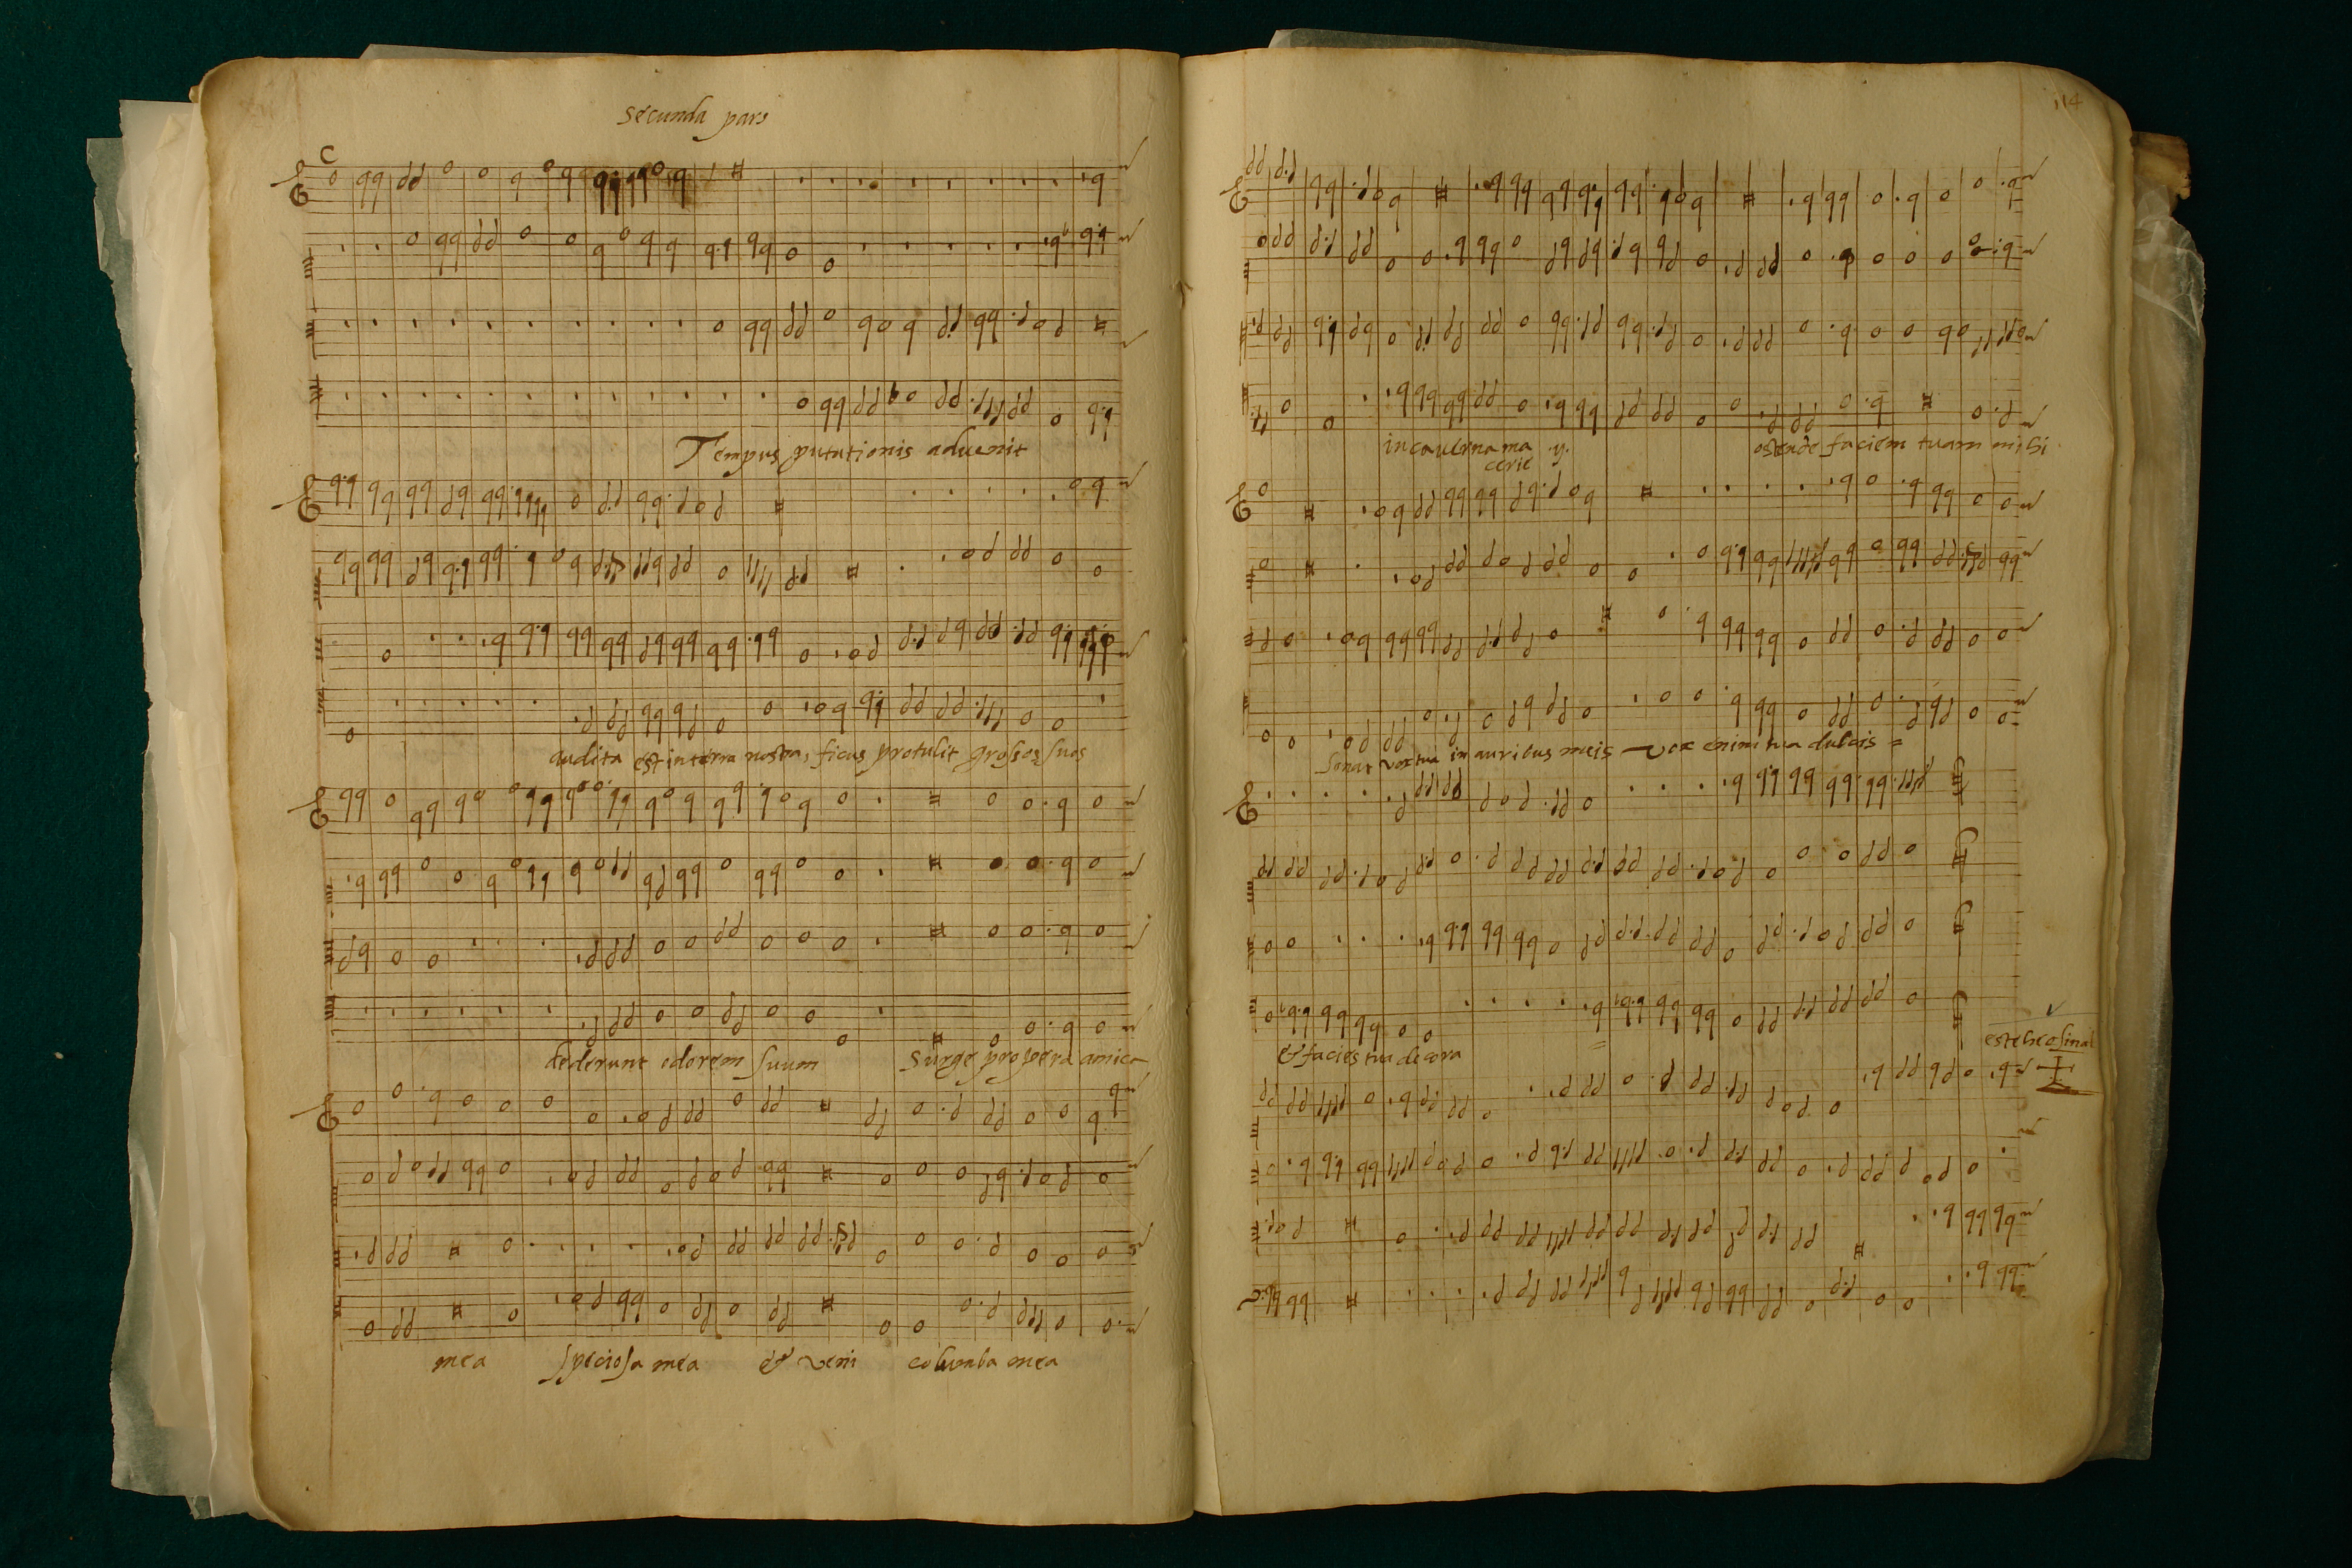 secunda pars
Tempus putationis advenit
audita est in terra nostra, ficus protulit grossos suos
dederunt odorem suum surge propera amica
mea speciosa mea & veni columba mea
114
in caverna ma
cerie y.
ostende faciem tuam mihi
sonat vox tua in auribus meis vox enim tua dulcis =
& facies tua decora =
este he o sinal